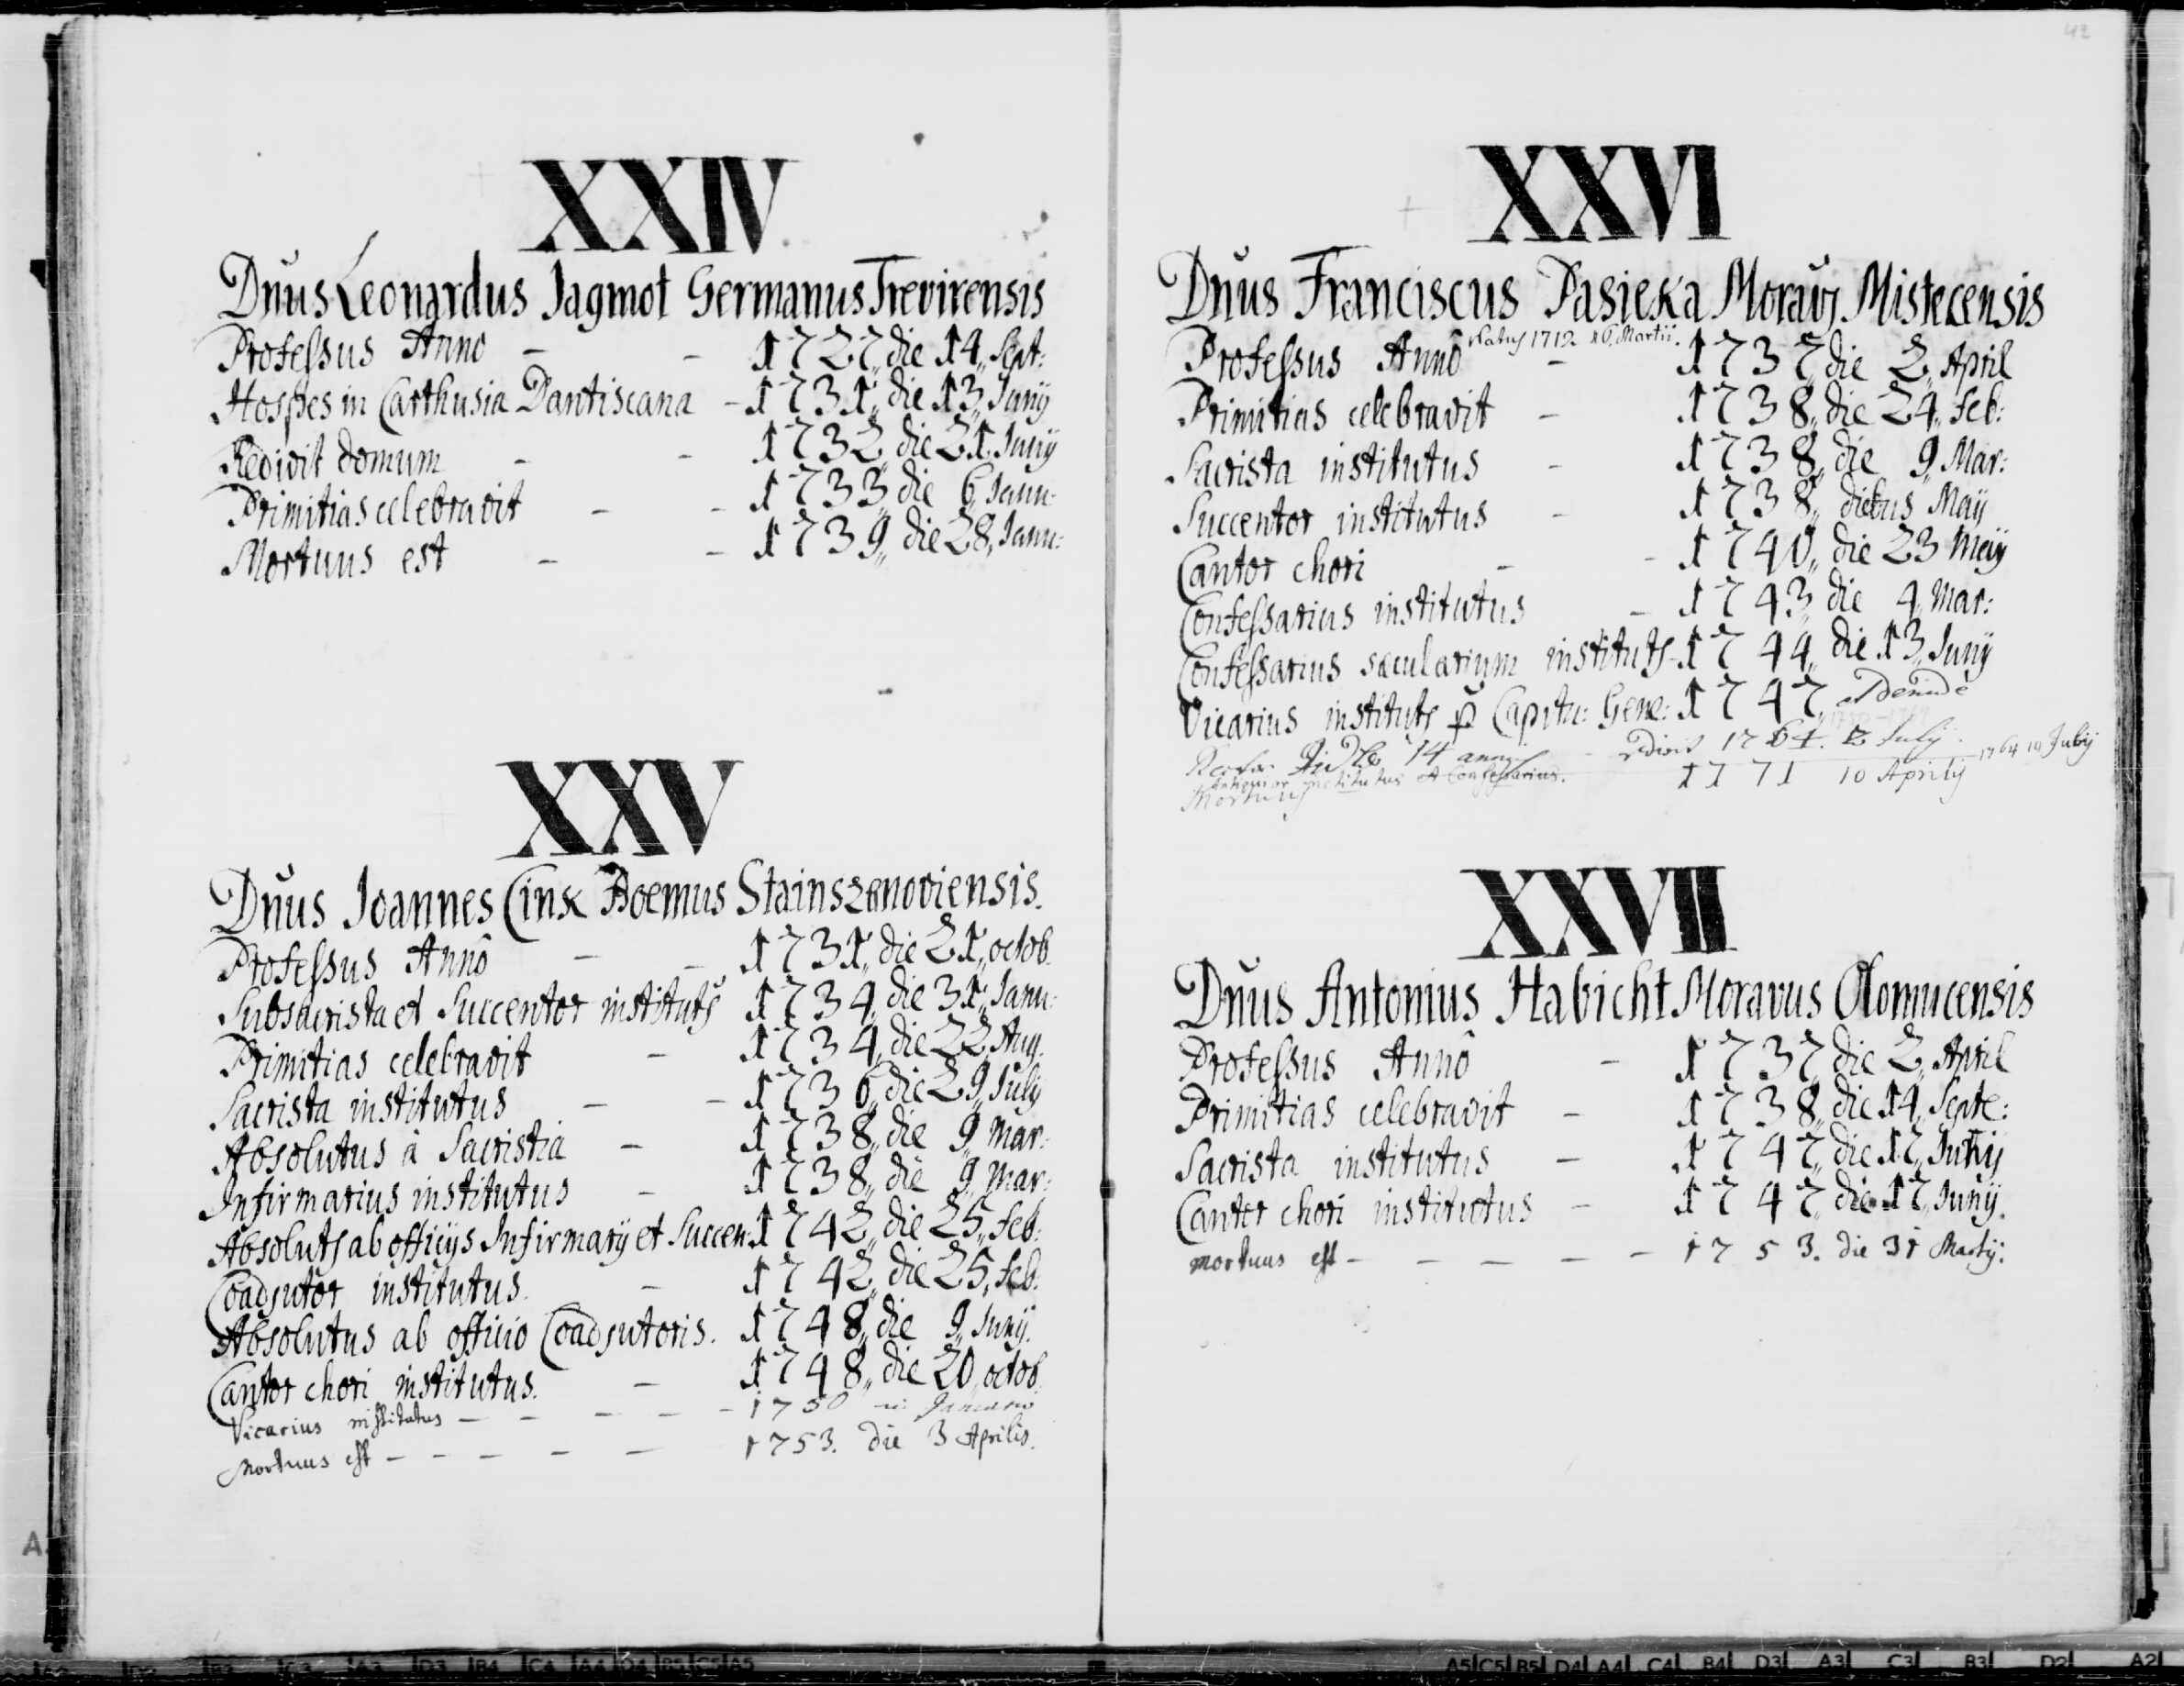 42
XXIV
Dñus Leonardus Jagmot Germanus Trevirensis
Profeſsus Anno - - 1727,, die 14,, Sept:
Hospes in Carthusia Dantiscana - 1731,, die 13,, Junÿ
Redivit domum - - 1732,, die 21,, Junÿ
Primitias celebravit - - 1733,, die 6,, Janu:
Mortuus est - - 1739,, die 28,, Janu:
XXV
Dñus Joannes Cink Boemus Stainszenoviensis.
Profeſsus Annô - - 1731,, die 21,, octob.
Subsacrista et Succentor institutꝰ 1734,, die 31,, Janu:
Primitias celebravit - 1734,, die 22,, Aug.
Sacrista institutus - - 1736,, die 29,, July
Absolutus à Sacristia - 1738,, die 9,, Mar:
Infirmarius institutus - 1738,, die 9,, Mar:
Absolutꝰ ab officÿs Infirmarÿ et Succen: 1742,, die 25,, Feb:
Coadjutor institutus. - 1742,, die 25,, Feb:
Absolutus ab officio Coadjutoris. 1748,, die 9,, Junÿ.
Cantor chori institutus. - 1748,, die 20,, octob.
Vicarius institutus - - - - - 1750 in Januario
Mortuus est - - - - - 1753. die 3 Aprilis.
XXVI
Dñus Franciscus Pasieka Moravꝰ Mistecensis
Natus 1712. 16. Martii.
Profeſsus Annô - 1737,, die 2,, April
Primitias celebravit - 1738,, die 24,, Feb:
Sacrista institutus - 1738,, die 9,, Mar:
Succentor institutus - 1738,, diebus Maÿ
Cantor chori - - 1740,, die 23 Maÿ
Confeſsarius institutus - 1743,, die 4,, Mar:
Confeſsarius sæcularium institutꝰ - 1744,, die 13,, Junÿ
Vicarius institutꝰ p Capitu: Gene: 1747,, Deinde
Rector 14 annis - rediit 1764. Julÿ.
Antiquior institutus et Confeſsarius. 1764 10 Julÿ
Mortuus 1771 10 Aprilÿ
XXVII
Dñus Antonius Habicht Moravus Olomucensis
Profeſsus Annô - 1737,, die 2,, April
Primitias celebravit - 1738,, die 14,, Septe:
Sacrista institutus - 1747,, die 17,, Junÿ
Cantor chori institutus - 1747,, die 17,, Junÿ.
mortuus est - - - - - 1753. die 31 Martÿ.